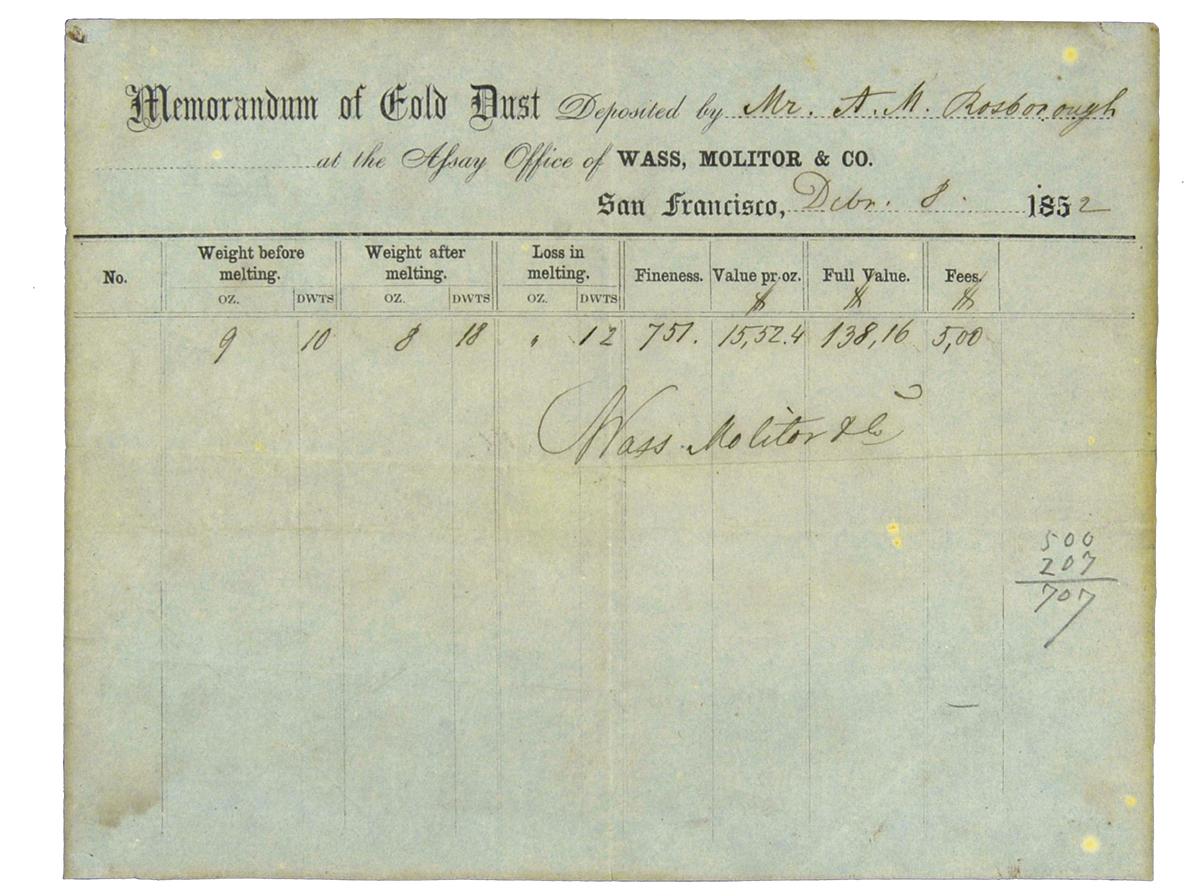 Memorandum of Gold Dust Deposited by Mr. A. M. Rosborough
at the Assay Office of WASS, MOLITOR & CO.
San Francisco, Debr. 8. 1852
No. Weight before melting. Weight after melting. Loss in melting. Fineness. Value pr. oz. Full Value. Fees.
OZ. DWTS OZ. DWTS OZ. DWTS $ $ $
9 10 8 18 " 12 751. 15,52.4 138,16 5,00
Wass Molitor & Co
500
207
707